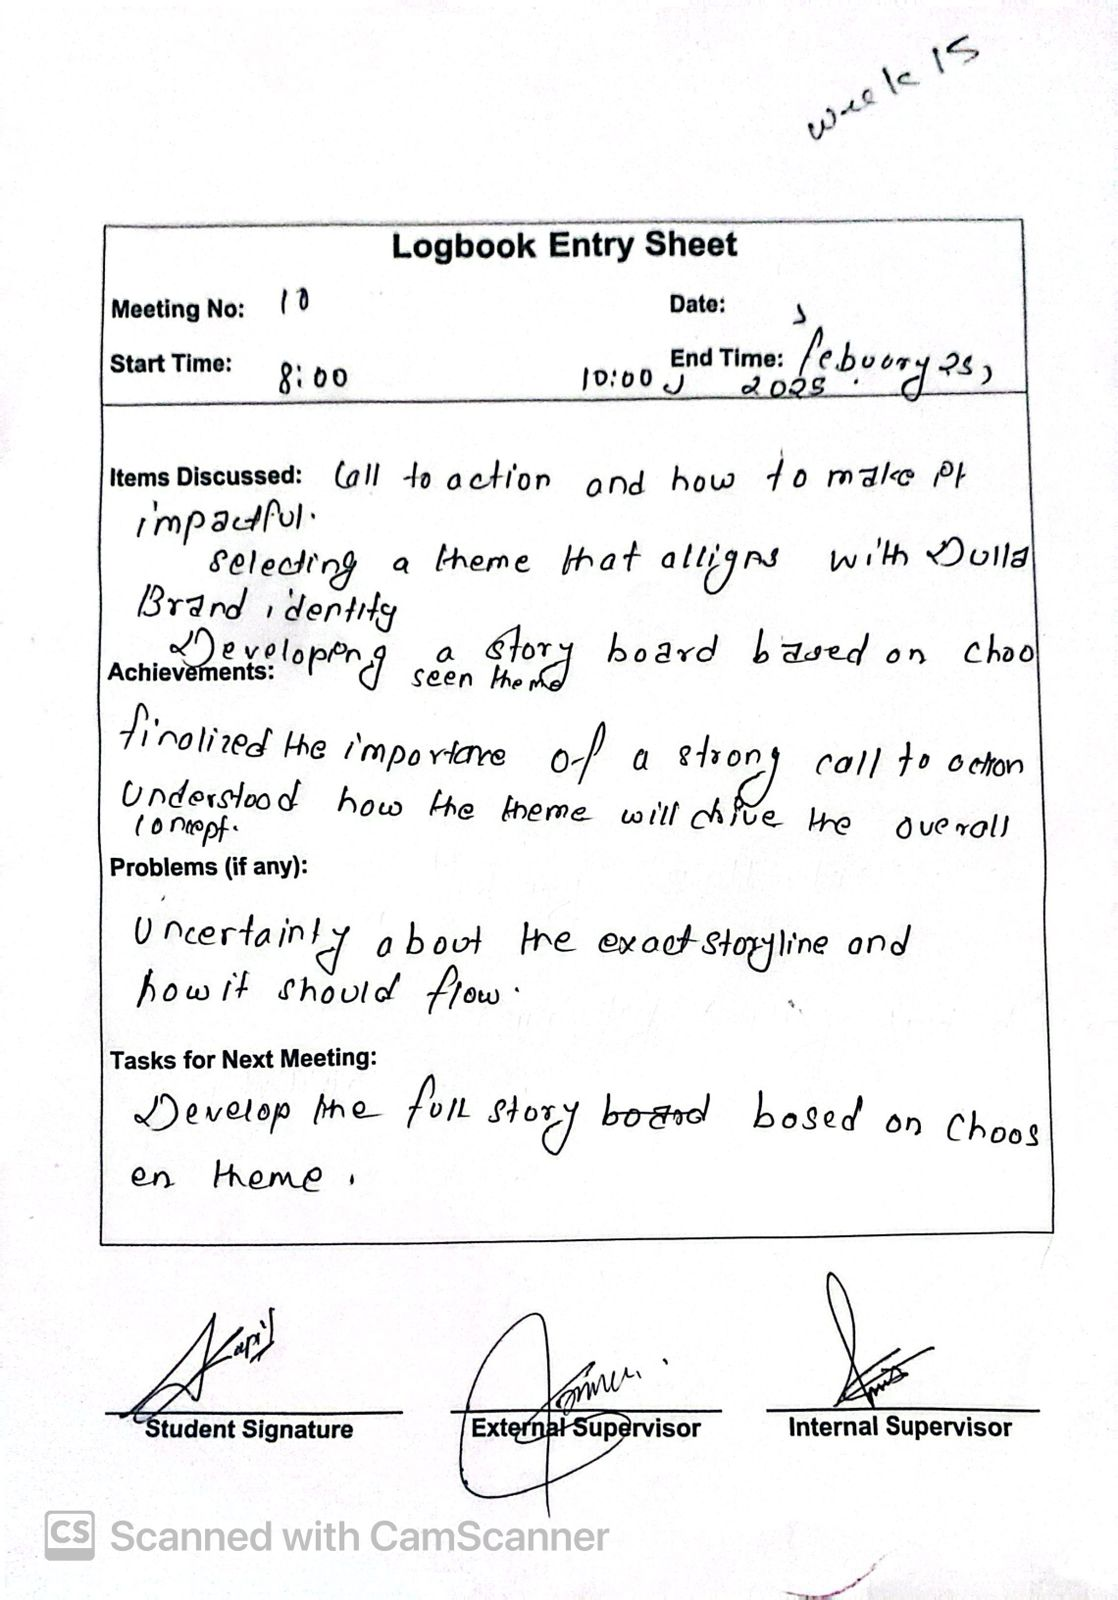 Week 15
Logbook Entry Sheet
Meeting No: 10
Date:
Start Time: 8:00
10:00 End Time: febuory 25,
2025
Items Discussed: Call to action and how to make it
impactful.
selecting a theme that alligns with Dulla
Brand identity
Developing a story board based on choo
seen theme
Achievements:
finolized the importance of a strong call to action
Understood how the theme will drive the overall
concept.
Problems (if any):
Uncertainty about the exact storyline and
how it should flow.
Tasks for Next Meeting:
Develop the full story board based on choos
en theme.
Kapil
Student Signature
External Supervisor
Internal Supervisor
CS Scanned with CamScanner